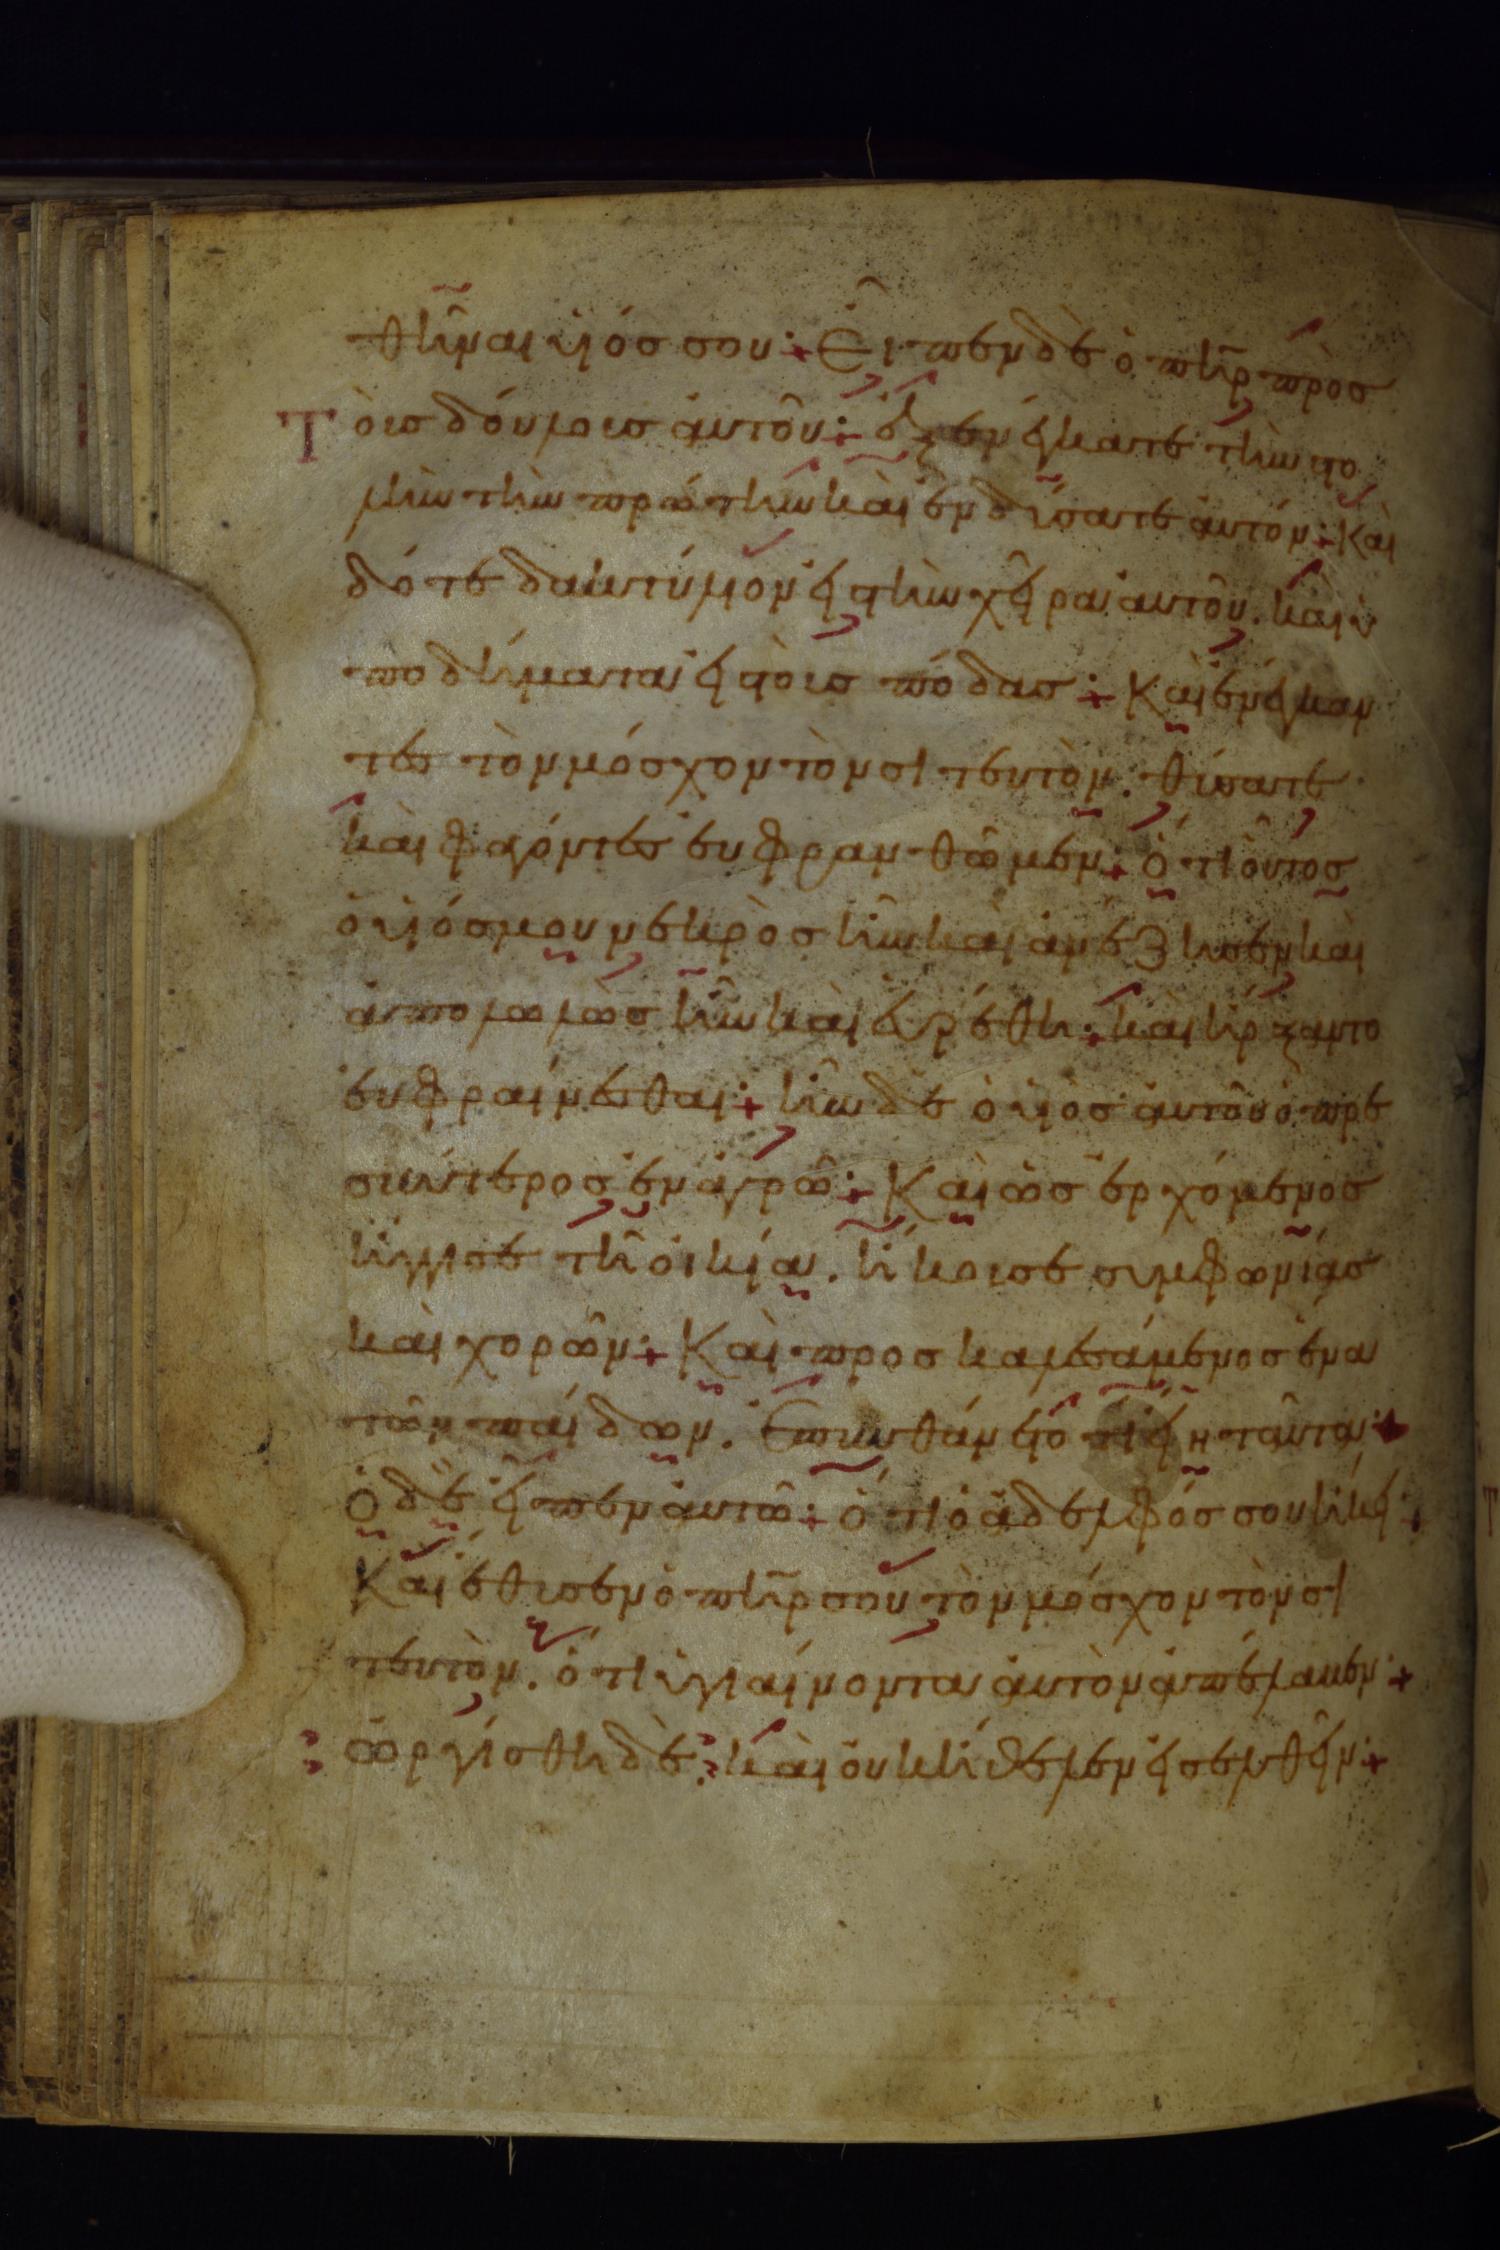 θῆναι υἱόσ σου: Εἶπεν δὲ ὁ πη̃ρ πρὸσ
Τ
ὸισ δούλοισ ἀυτοῦ: ἐξενέγκατε τὴν στο
λὴν τὴν πρώτην καὶ ἐνδύσατε ἀυτόν: Καὶ
δότε δακτύλιον εἰσ τὴν χεῖρα ἀυτοῦ. καὶ ὑ
ποδήματα εἰσ τοὺσ πόδασ: Καὶ ἐνέγκαν
τεσ τὸν μόσχον τὸν σιτευτὸν. θύσατε
καὶ φαγόντεσ ἐυφρανθῶμεν: ὅτι ὁυτοσ
ὁ υἱόσ μου νεκρὸσ ἦν καὶ ἀνέζησεν καὶ
ἀπολωλὼσ ἦν καὶ ἑυρέθη: καὶ ἤρξαντο
ἐυφραίνεσθαι: ἦν δὲ ὁ υἱὸσ ἀυτοῦ ὁ πρε
σβύτεροσ ἐν ἀγρῶ: Καὶ ὡσ ἐρχόμενοσ
ἤγγισε τῆ ὀικία. ἤκουσε συμφωνίασ
καὶ χορῶν: Καὶ προσκαλεσάμενοσ ἕνα
τῶν παίδων. Ἐπυνθάνετο τί εἴη ταῦτα:
Ὁ δὲ εἶπεν ἀυτῶ: ὅτι ὁ ἀδελφόσ σου ἥκει:
Καὶ ἔθυσεν ὁ πη̃ρ σου τὸν μόσχον τὸν σι
τευτὸν. ὅτι ὑγιαίνοντα ἀυτὸν ἀπέλαβεν:
ὠργίσθη δὲ: καὶ ὀυκ ἤθελεν εἰσελθεῖν: